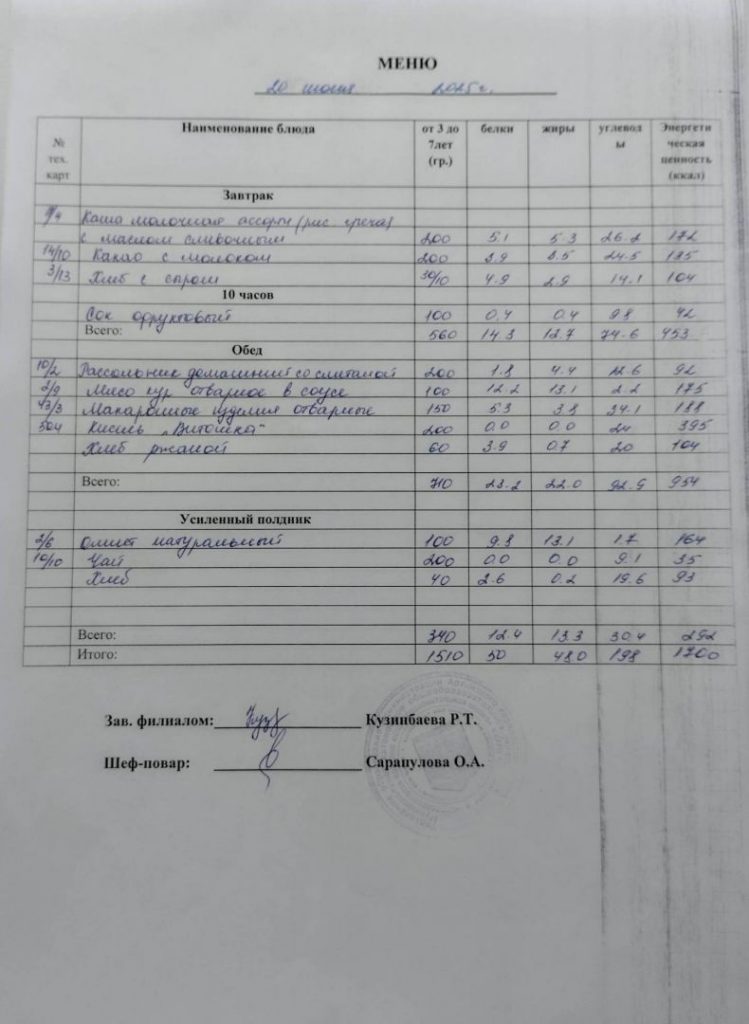 МЕНЮ
20 июня 2025 г.
№ тех. карт Наименование блюда от 3 до 7лет (гр.) белки жиры углеводы Энергетическая ценность (ккал)
Завтрак
Каша молочная ассорти (рис гречка)
с маслом сливочным 200 5.1 5.3 26.2 172
14/10 Какао с молоком 200 3.9 3.5 24.5 135
3/13 Хлеб с сыром 30/10 4.9 2.9 14.1 104
10 часов
Сок фруктовый 100 0.4 0.4 9.8 42
Всего: 560 14.3 12.7 74.6 453
Обед
10/2 Рассольник домашний со сметаной 200 1.8 4.4 12.6 92
2/9 Мясо кур отварное в соусе 100 12.2 13.1 2.2 175
43/3 Макаронные изделия отварные 150 5.3 3.8 34.1 188
504 Кисель „Витошка“ 200 0.0 0.0 24 395
Хлеб ржаной 60 3.9 0.7 20 104
Всего: 710 23.2 22.0 92.9 954
Усиленный полдник
2/6 Омлет натуральный 100 9.8 13.1 1.7 164
10/10 Чай 200 0.0 0.0 9.1 35
Хлеб 40 2.6 0.2 19.6 93
Всего: 340 12.4 13.3 30.4 292
Итого: 1510 50 48.0 198 1700
Зав. филиалом: Кузинбаева Р.Т.
Шеф-повар: Сарапулова О.А.